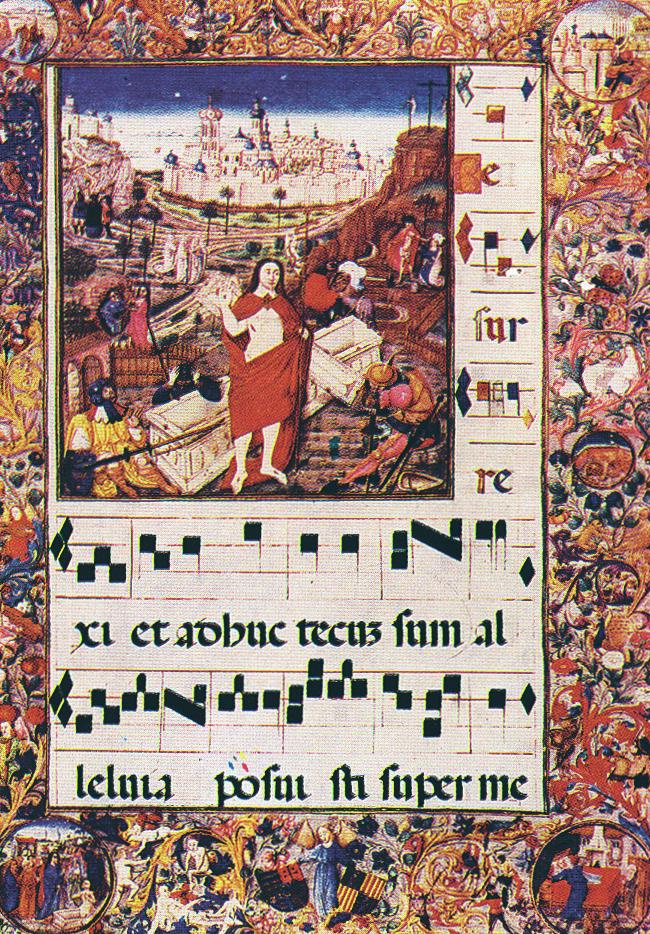 Re
sur
re
xi et adhuc tecuz sum al
leluia posui sti super me